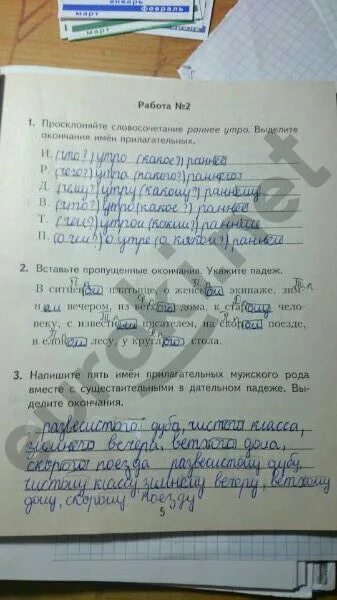 январь
февраль
март
март
Работа №2
1. Просклоняйте словосочетание раннее утро. Выделите
окончания имён прилагательных.
И. (что?) утро (какое?) раннее
Р. (чего?) утра (какого?) раннего
Д. (чему?) утру (какому?) раннему
В. (что?) утро (какое?) раннее
Т. (чем?) утром (каким?) ранним
П. (о чём?) о утре (о каком?) раннем
2. Вставьте пропущенные окончания. Укажите падеж.
В ситцевом платьице, о женском экипаже, зим-
ним вечером, из ветхого дома, к старому чело-
веку, с известным писателем, на скором поезде,
в еловом лесу, у круглого стола.
3. Напишите пять имён прилагательных мужского рода
вместе с существительными в дательном падеже. Вы-
делите окончания.
развесистого дуба, чистого класса,
зимнего вечера, ветхого дома,
скорого поезда развесистому дубу,
чистому классу, зимнему вечеру, ветхому
дому, скорому поезду
5